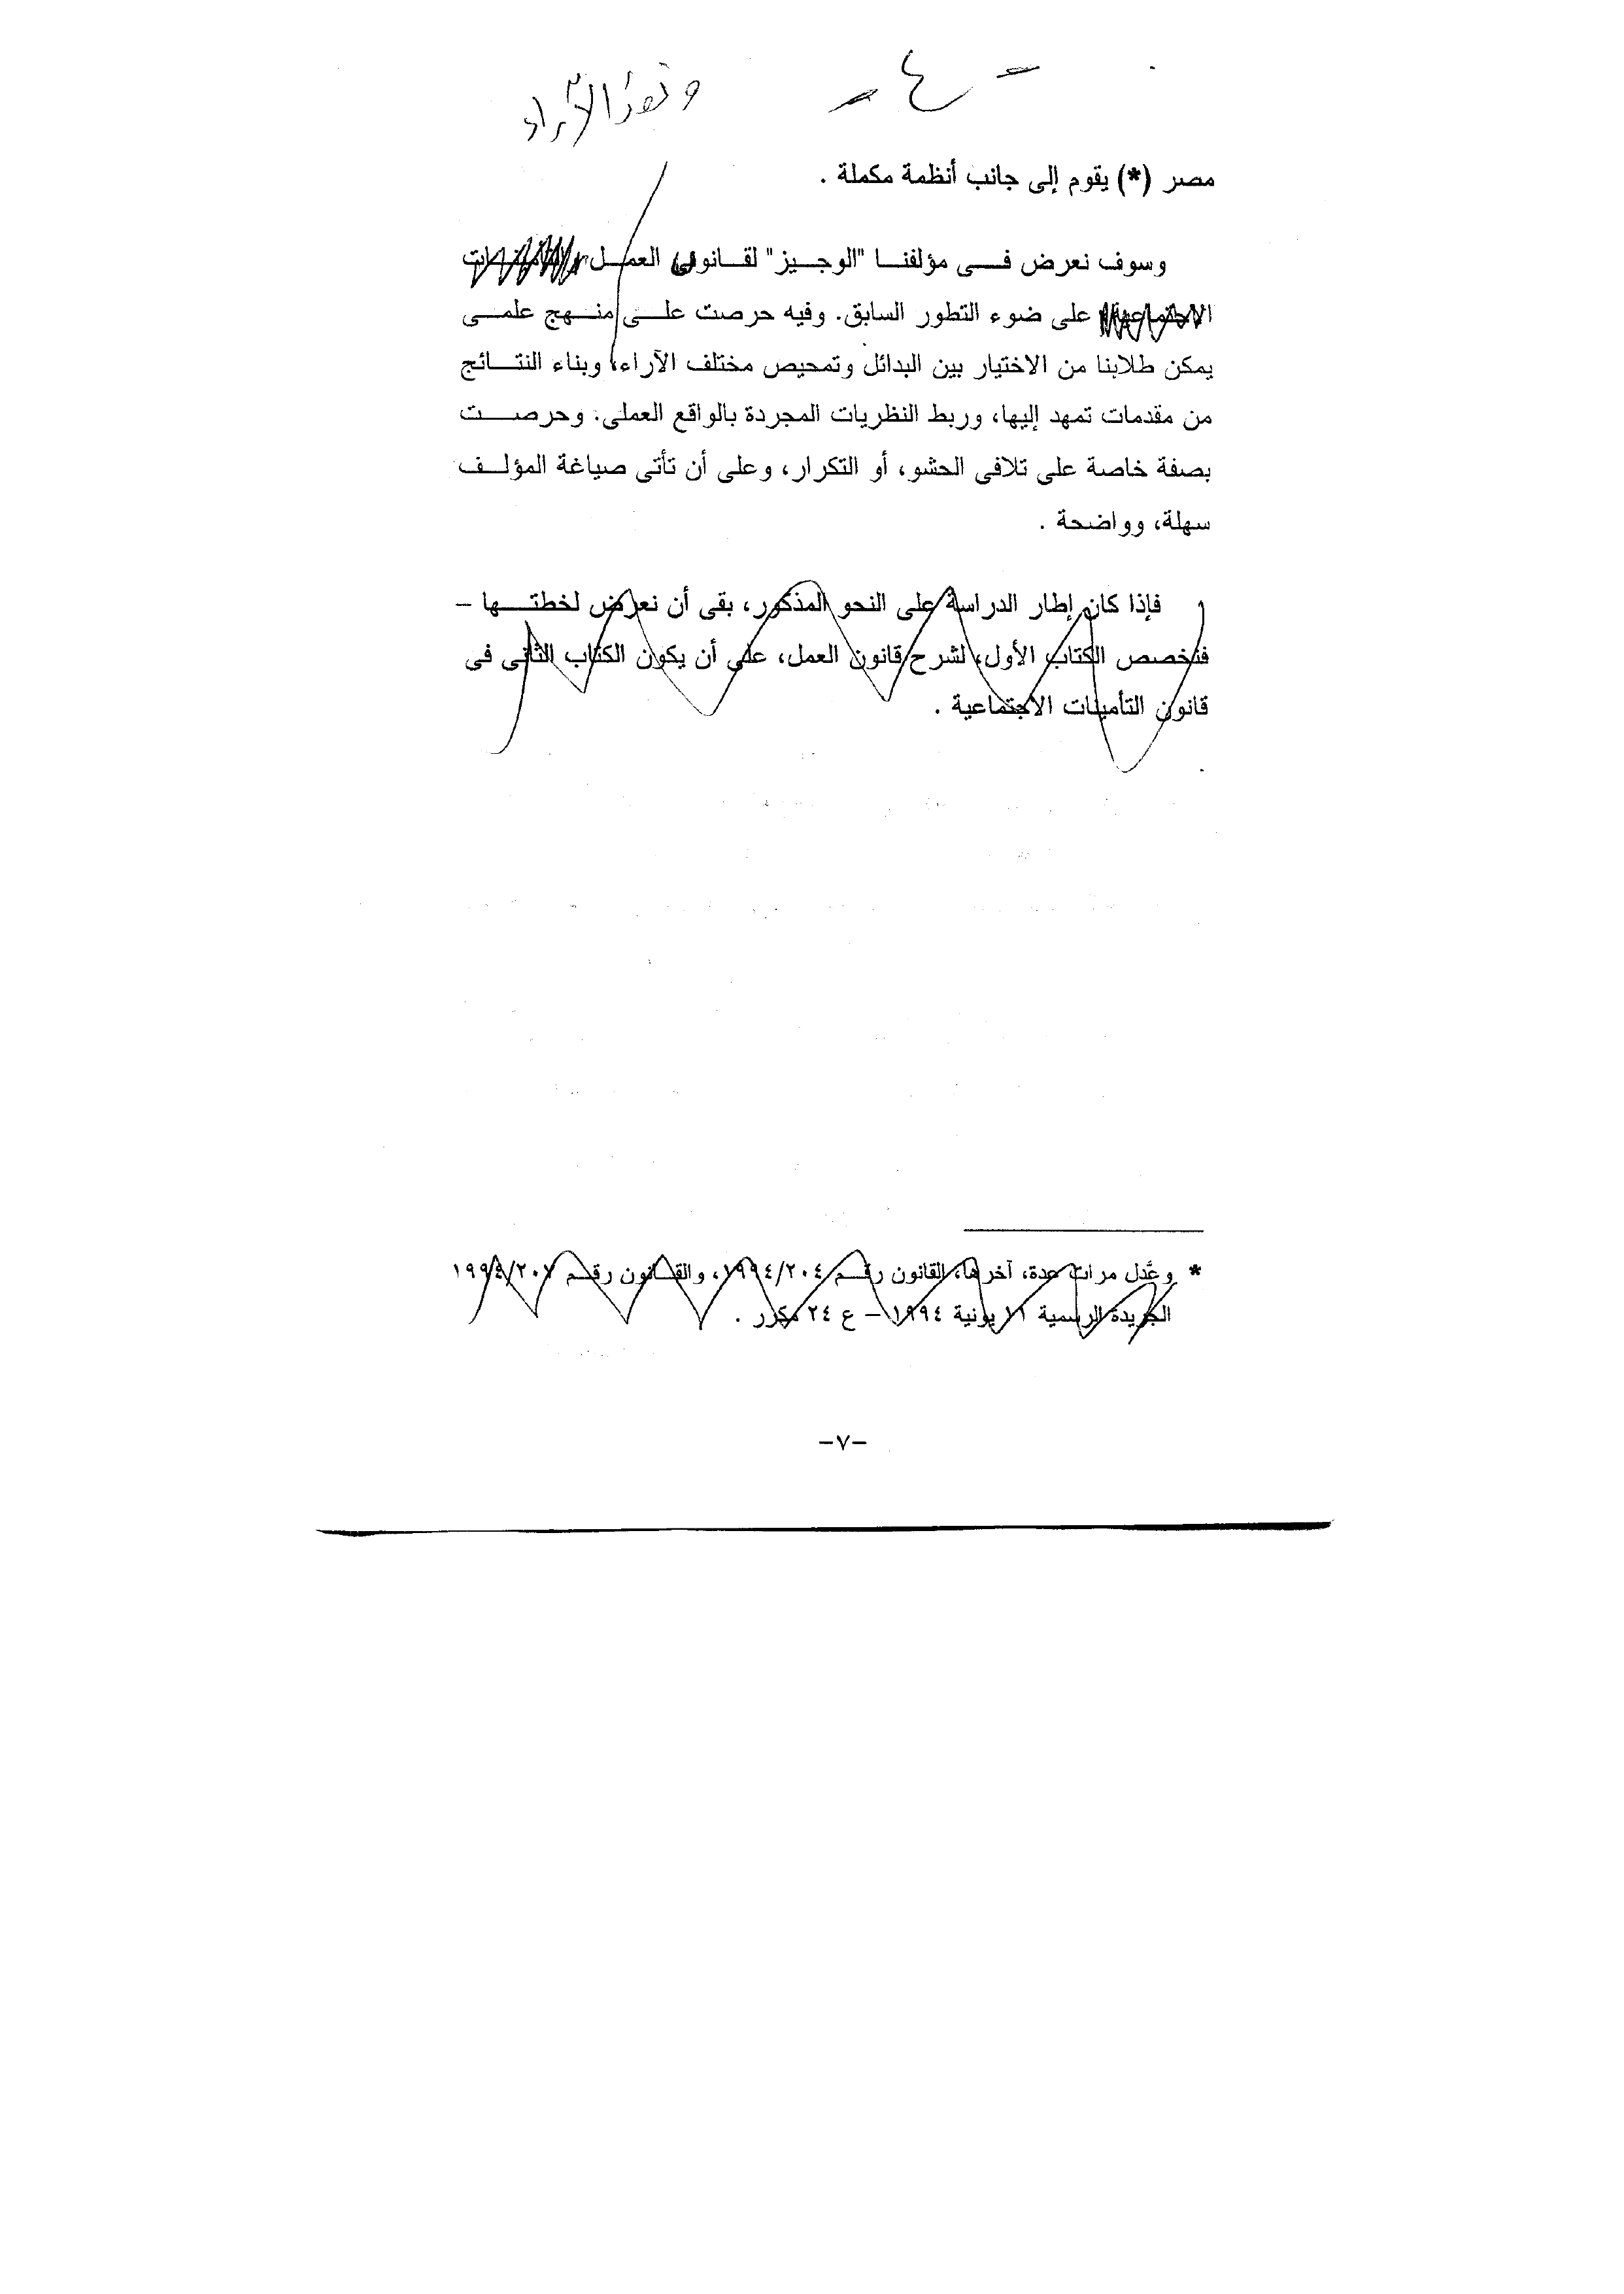 - ٤ -
ونقد الآراء
مصر (*) يقوم إلى جانب أنظمة مكملة .
وسوف نعرض فى مؤلفنا "الوجيز" لقانون العمل
على ضوء التطور السابق. وفيه حرصت على منهج علمى
يمكن طلابنا من الاختيار بين البدائل وتمحيص مختلف الآراء، وبناء النتائج
من مقدمات تمهد إليها، وربط النظريات المجردة بالواقع العملى. وحرصت
بصفة خاصة على تلافى الحشو، أو التكرار، وعلى أن تأتى صياغة المؤلف
سهلة، وواضحة .
فإذا كان إطار الدراسة على النحو المذكور، بقى أن نعرض لخطتها –
فنخصص الكتاب الأول، لشرح قانون العمل، على أن يكون الكتاب الثانى فى
قانون التأمينات الاجتماعية .
* وعُدل مرات عدة، آخرها، القانون رقم ١٩٩٤/٢٠٤، والقانون رقم ١٩٩٤/٢٠٧
الجريدة الرسمية ١١ يونية ١٩٩٤ – ع ٢٤ مكرر .
-٧-